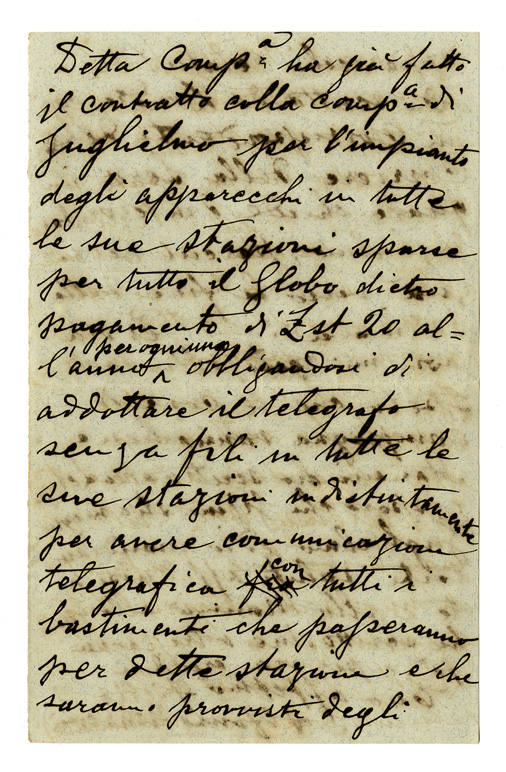 Detta Comp.a ha già fatto
il contratto colla Comp.a di
Guglielmo per l'impianto
degli apparecchi in tutte
le sue stazioni sparse
per tutto il Globo dietro
pagamento di £st 20 al=
per ogniuna
l'anno ^ obbligandosi di
addottare il telegrafo
senza fili in tutte le
sue stazioni indistintamente
per avere comunicazione
telegrafica con tutti i
bastimenti che passeranno
per dette stazione e che
saranno provvisti degli